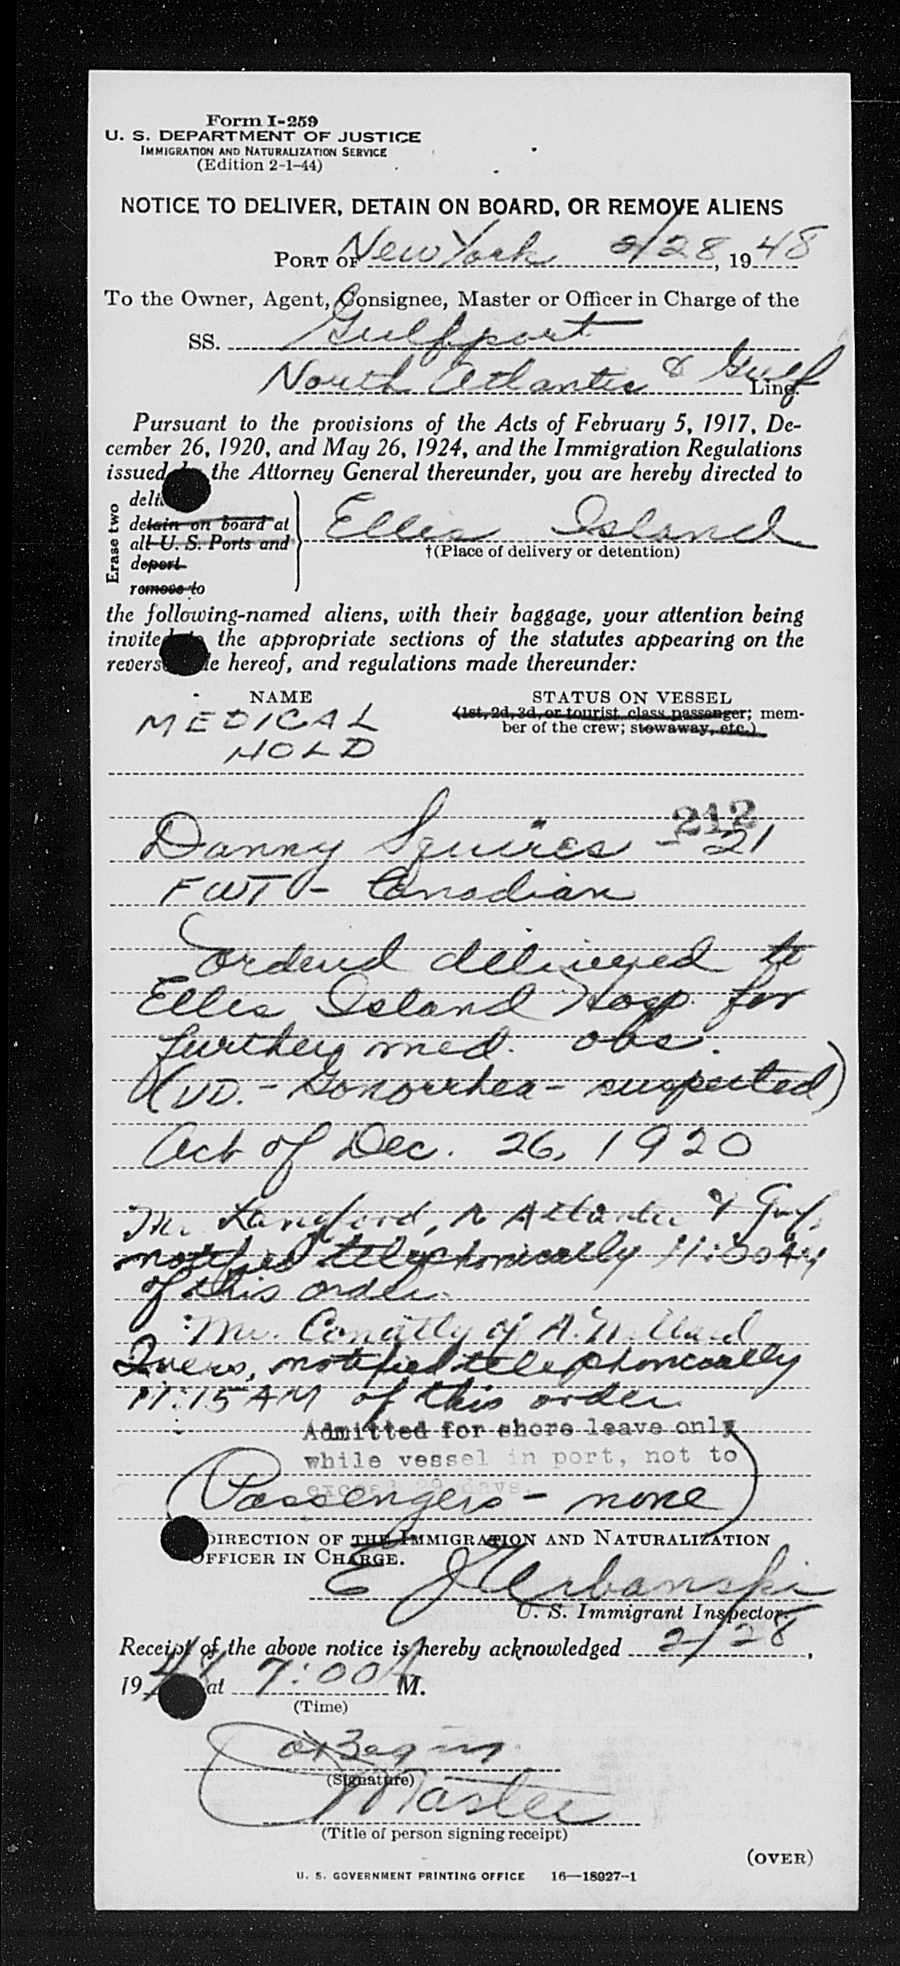 Form I-259
U. S. DEPARTMENT OF JUSTICE
IMMIGRATION AND NATURALIZATION SERVICE
(Edition 2-1-44)
NOTICE TO DELIVER, DETAIN ON BOARD, OR REMOVE ALIENS
PORT OF New York 2/28, 1948
To the Owner, Agent, Consignee, Master or Officer in Charge of the
SS. Gulfport
North Atlantic & Gulf Line.
Pursuant to the provisions of the Acts of February 5, 1917, De-
cember 26, 1920, and May 26, 1924, and the Immigration Regulations
issued the Attorney General thereunder, you are hereby directed to
Erase two
deli
detain on board at
all U. S. Ports and
deport
remove to
Ellis Island
†(Place of delivery or detention)
the following-named aliens, with their baggage, your attention being
invited the appropriate sections of the statutes appearing on the
revers e hereof, and regulations made thereunder:
NAME
STATUS ON VESSEL
(1st, 2d, 3d, or tourist class passenger; mem-
ber of the crew; stowaway, etc.)
MEDICAL
HOLD
212
Danny Squires - 21
FWT - Canadian
ordered delivered to
Ellis Island Hosp. for
further med. obs.
(VD. - Gonorrhea - suspected)
Act of Dec. 26, 1920
Mr. Langford, N Atlantic & Gulf,
notified telephonically 11:30AM
of this order.
Mr. Conatly of A. Willard
Ivers, notified telephonically
11:15AM of this order
Admitted for shore leave only
while vessel in port, not to
exceed 29 days.
(Passengers - none)
DIRECTION OF THE IMMIGRATION AND NATURALIZATION
OFFICER IN CHARGE.
E J Urbanski
U. S. Immigrant Inspector.
Receipt of the above notice is hereby acknowledged 2/28,
19 at 7:00 A M.
(Time)
(Signature)
Master
(Title of person signing receipt)
(OVER)
U. S. GOVERNMENT PRINTING OFFICE 16—18927-1